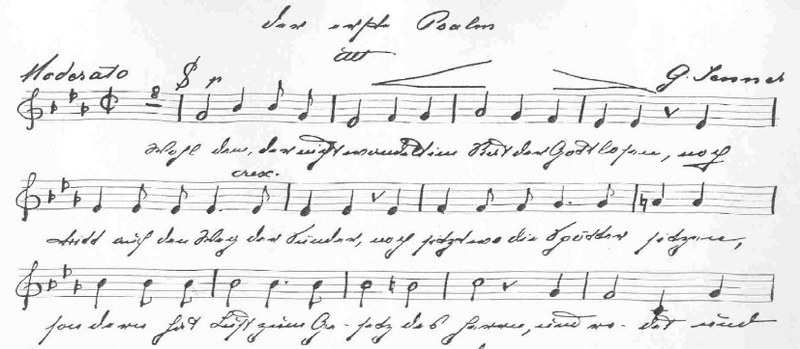 der erste Psalm
Alt
Moderato
p
G. Jenner
8
Wohl dem, der nicht wandelt im Rat der Gottlosen, noch
cresc.
tritt auf den Weg der Sünder, noch sitzt wo die Spötter sitzen,
sondern hat Lust zum Ge-setz des Herrn, und re-det und